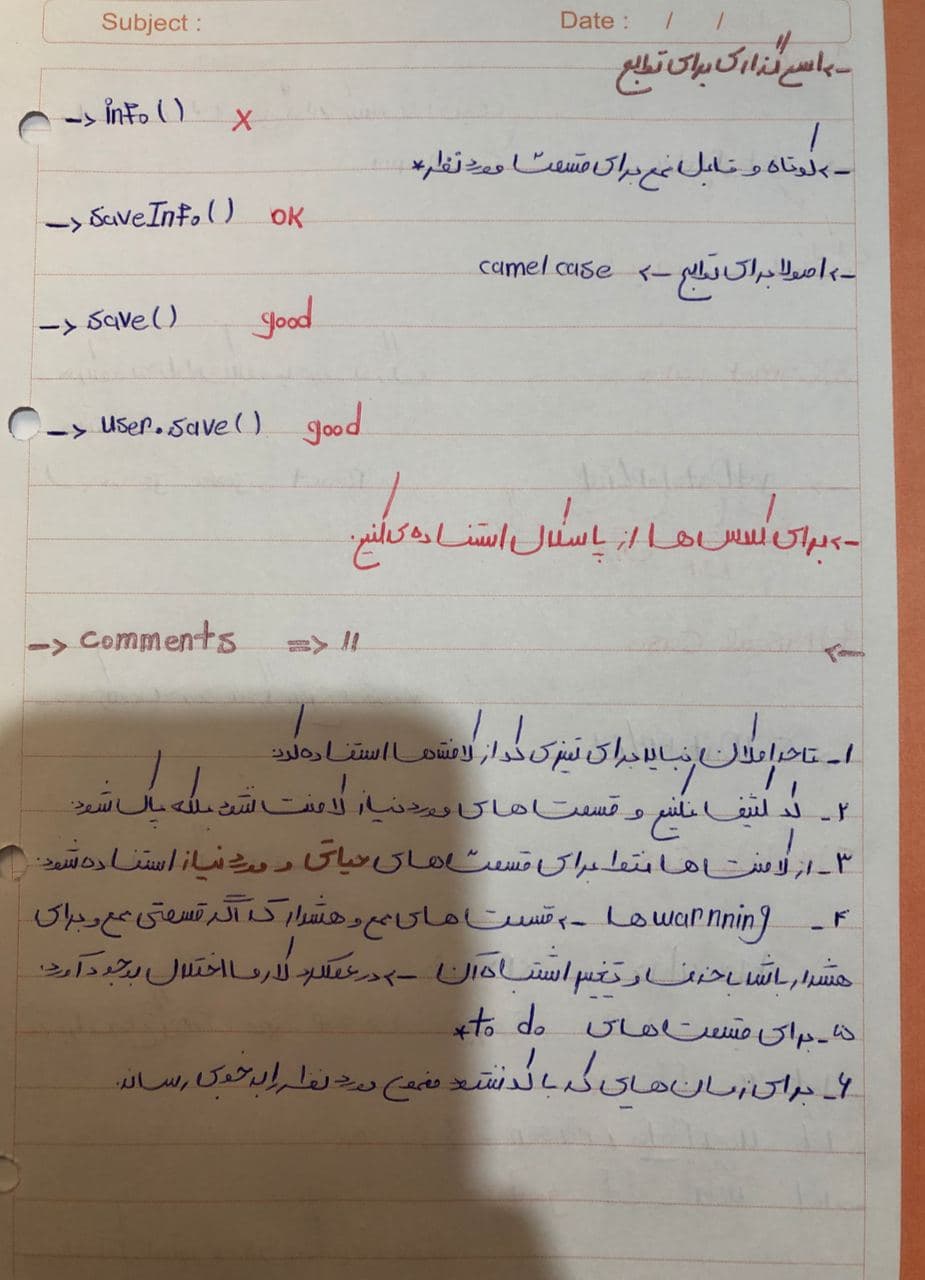 Subject :
Date : / /
-> اسم گذاری برای توابع
-> info() X
-> کوتاه و قابل فهم برای قسمت مورد نظر *
-> saveInfo() OK
-> اصولا برای توابع -> camel case
-> save() good
-> user.save() good
-> برای کلاس ها از پاسکال استفاده می کنیم.
-> comments => //
<-
۱- تا حد امکان نباید برای تمیزی کد از کامنت‌ها استفاده کرد.
۲- کد کثیف نکنیم و قسمت های مورد نیاز کامنت شود بلکه پاک شود.
۳- از کامنت ها فقط برای قسمت های حیاتی و مورد نیاز استفاده شود.
۴- warnning ها -> قسمت های مهم و هشدار که اگر قسمتی مهم و برای
هشدار باشد با حذف و تغییر اشتباه آن -> در عملکرد کار ما اختلال بوجود آورد.
۵- برای قسمت های to do *
۶- برای زمان هایی که با کد نشد مفهوم مورد نظر را به خوبی رساند.